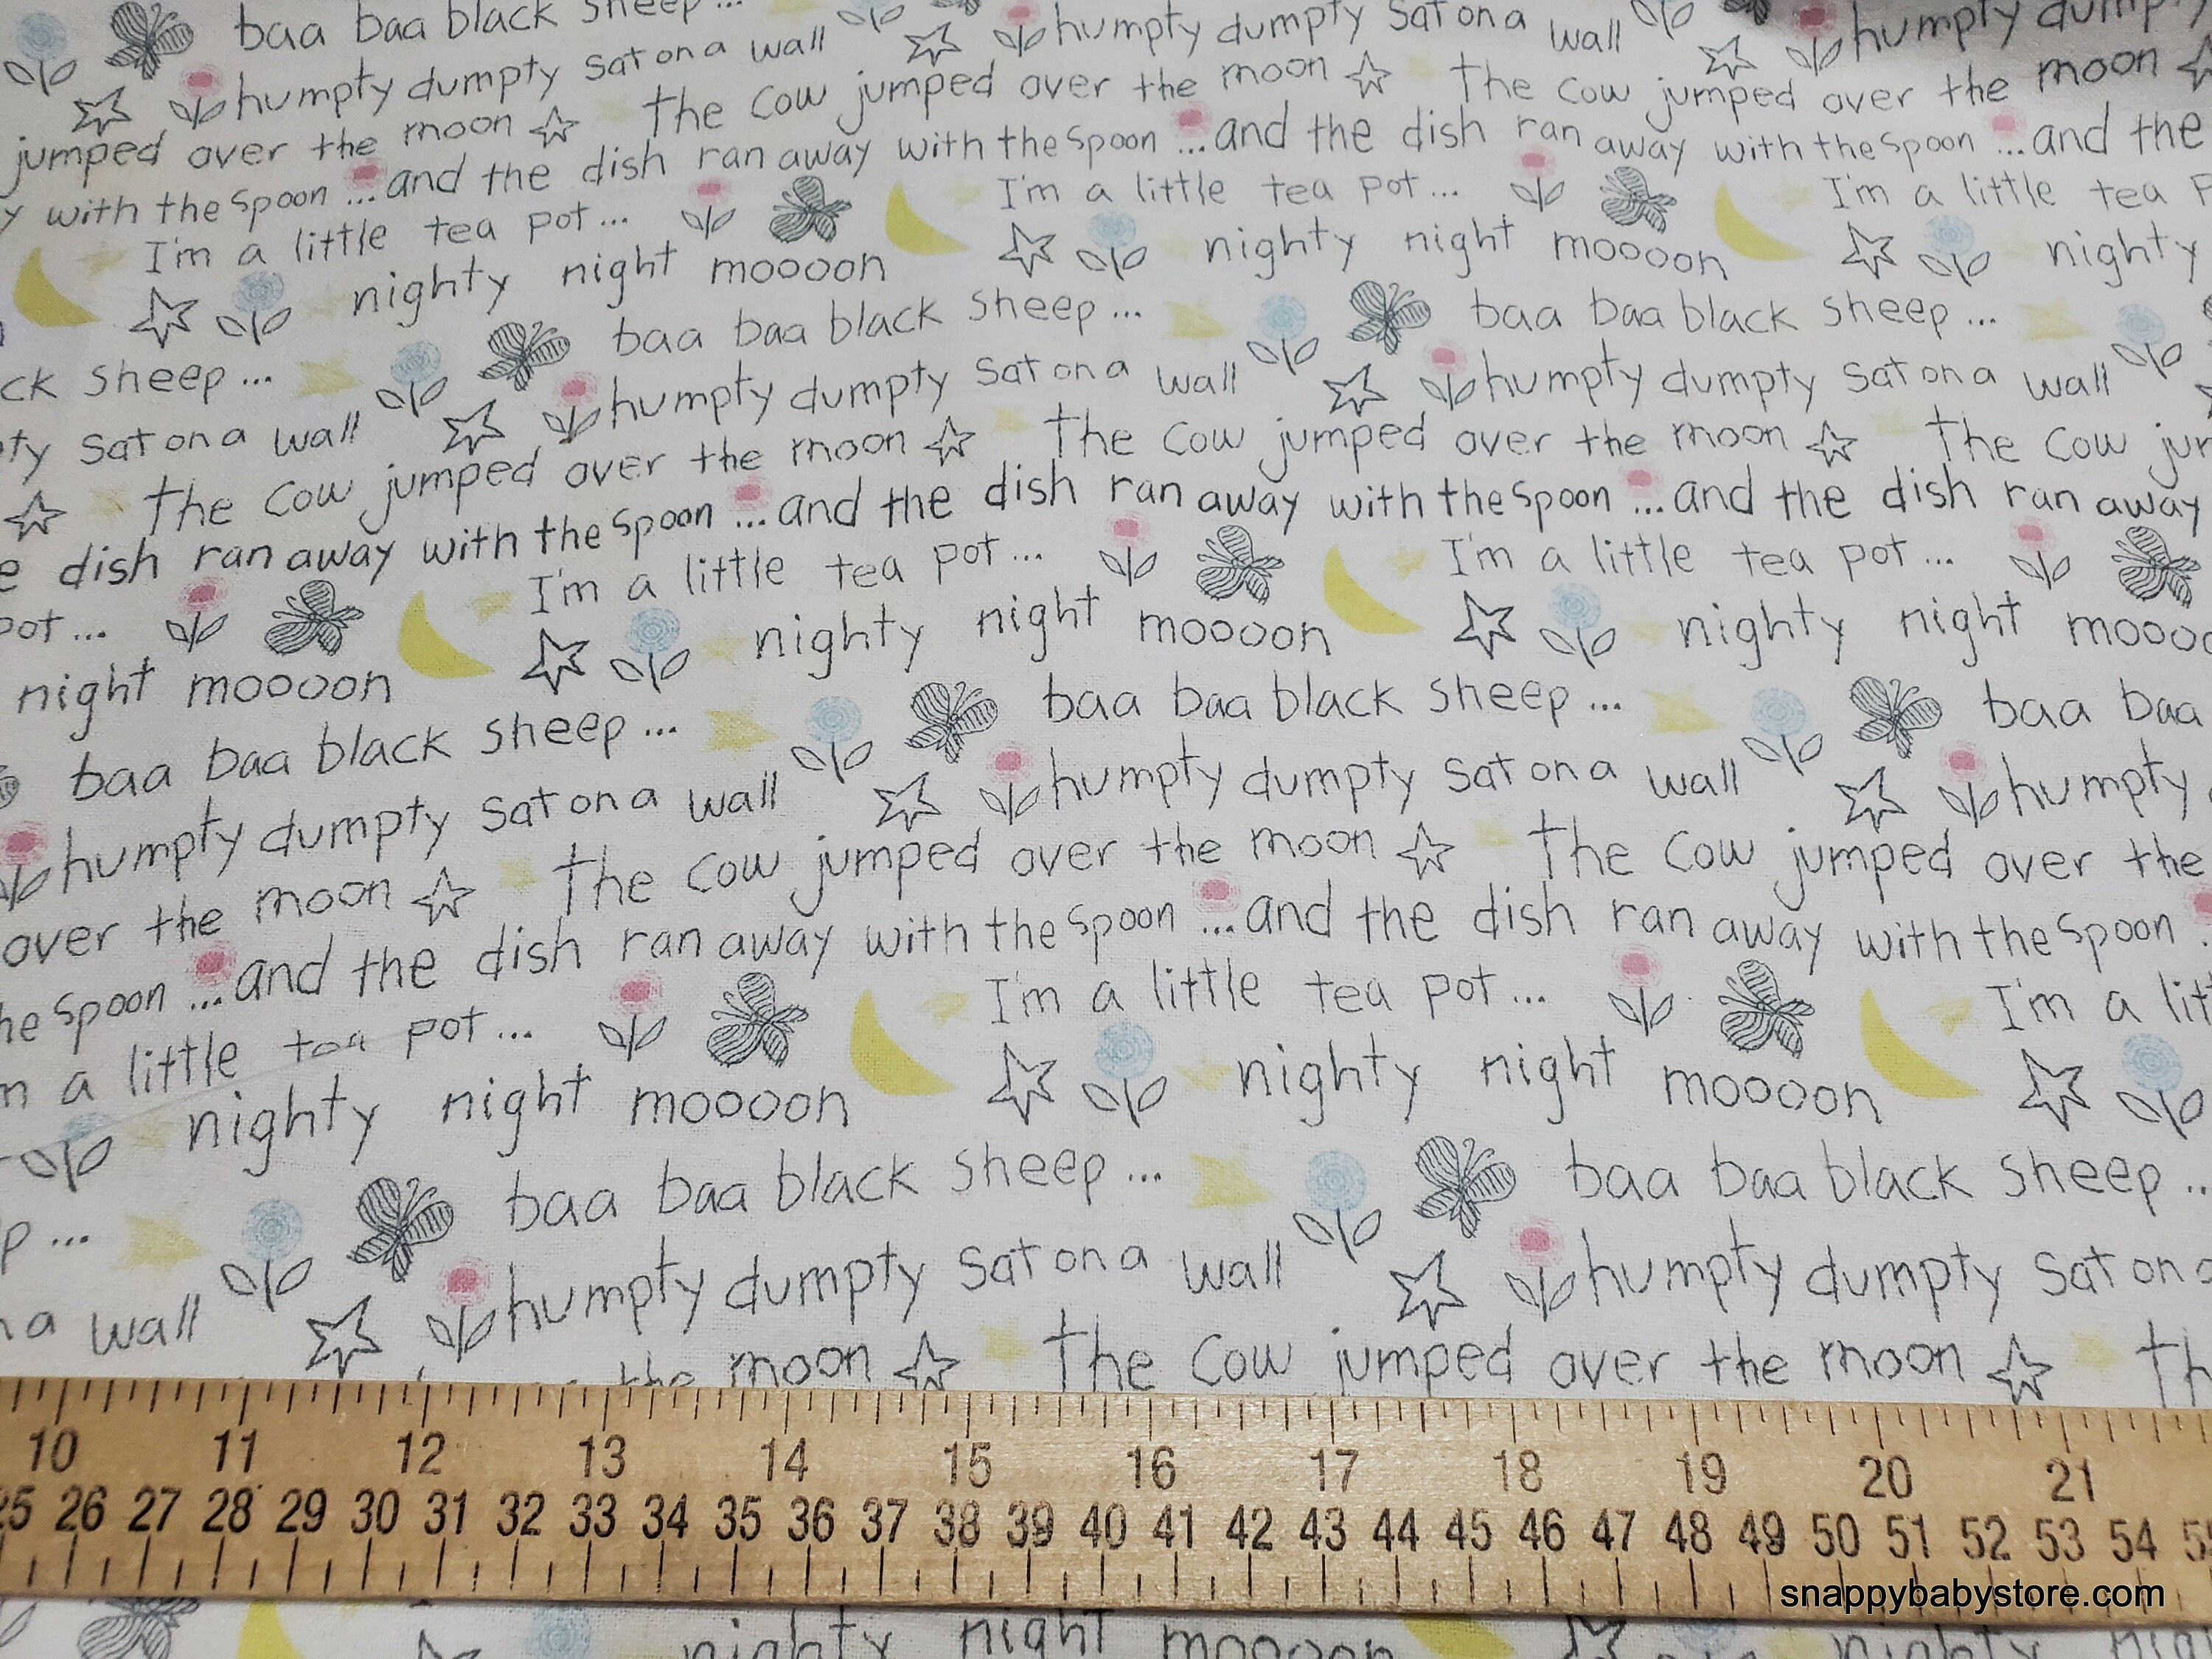 baa baa black sheep ...
humpty dumpty sat on a wall humpty dumpty sat on a wall humpty
jumped over the moon The cow jumped over the moon The cow jumped over the moon
with the spoon ...and the dish ran away with the spoon ...and the dish ran away with the spoon ...and the
I'm a little tea pot... I'm a little tea pot... I'm a little tea
nighty night moooon nighty night moooon nighty
sheep ... baa baa black sheep ... baa baa black sheep ...
sat on a wall humpty dumpty sat on a wall humpty dumpty sat on a wall
The cow jumped over the moon The cow jumped over the moon The cow
dish ran away with the spoon ...and the dish ran away with the spoon ...and the dish ran away
pot... I'm a little tea pot... I'm a little tea pot...
night moooon nighty night moooon nighty night
baa baa black sheep ... baa baa black sheep ... baa baa
humpty dumpty sat on a wall humpty dumpty sat on a wall humpty
over the moon The cow jumped over the moon The cow jumped over the
the spoon ...and the dish ran away with the spoon ...and the dish ran away with the spoon
a little tea pot... I'm a little tea pot... I'm a
nighty night moooon nighty night moooon
... baa baa black sheep ... baa baa black sheep ...
a wall humpty dumpty sat on a wall humpty dumpty sat on
the moon The cow jumped over the moon
10 11 12 13 14 15 16 17 18 19 20 21
25 26 27 28 29 30 31 32 33 34 35 36 37 38 39 40 41 42 43 44 45 46 47 48 49 50 51 52 53 54
snappybabystore.com
nighty night moooon